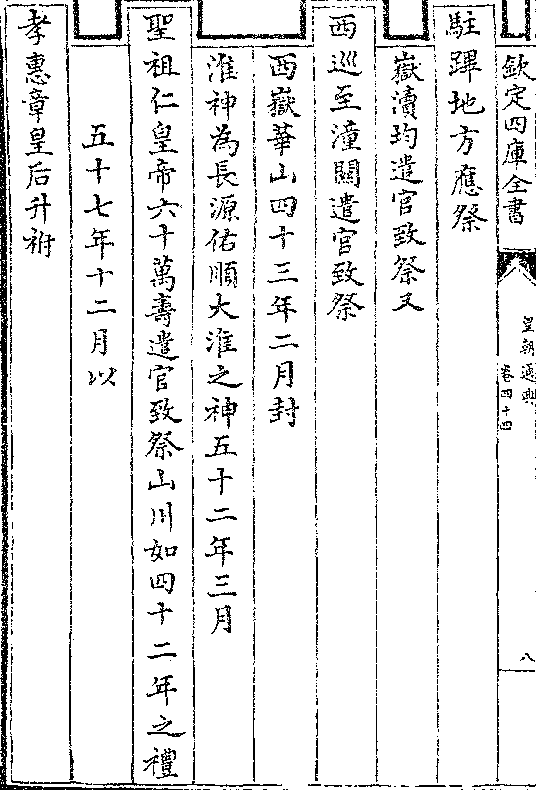 欽定四庫全書
皇朝通典
卷四十四
八
駐蹕地方應祭
嶽瀆均遣官致祭又
西巡至潼關遣官致祭
西嶽華山四十三年二月封
淮神為長源佑順大淮之神五十二年三月
聖祖仁皇帝六十萬壽遣官致祭山川如四十二年之禮
五十七年十二月以
孝惠章皇后升祔